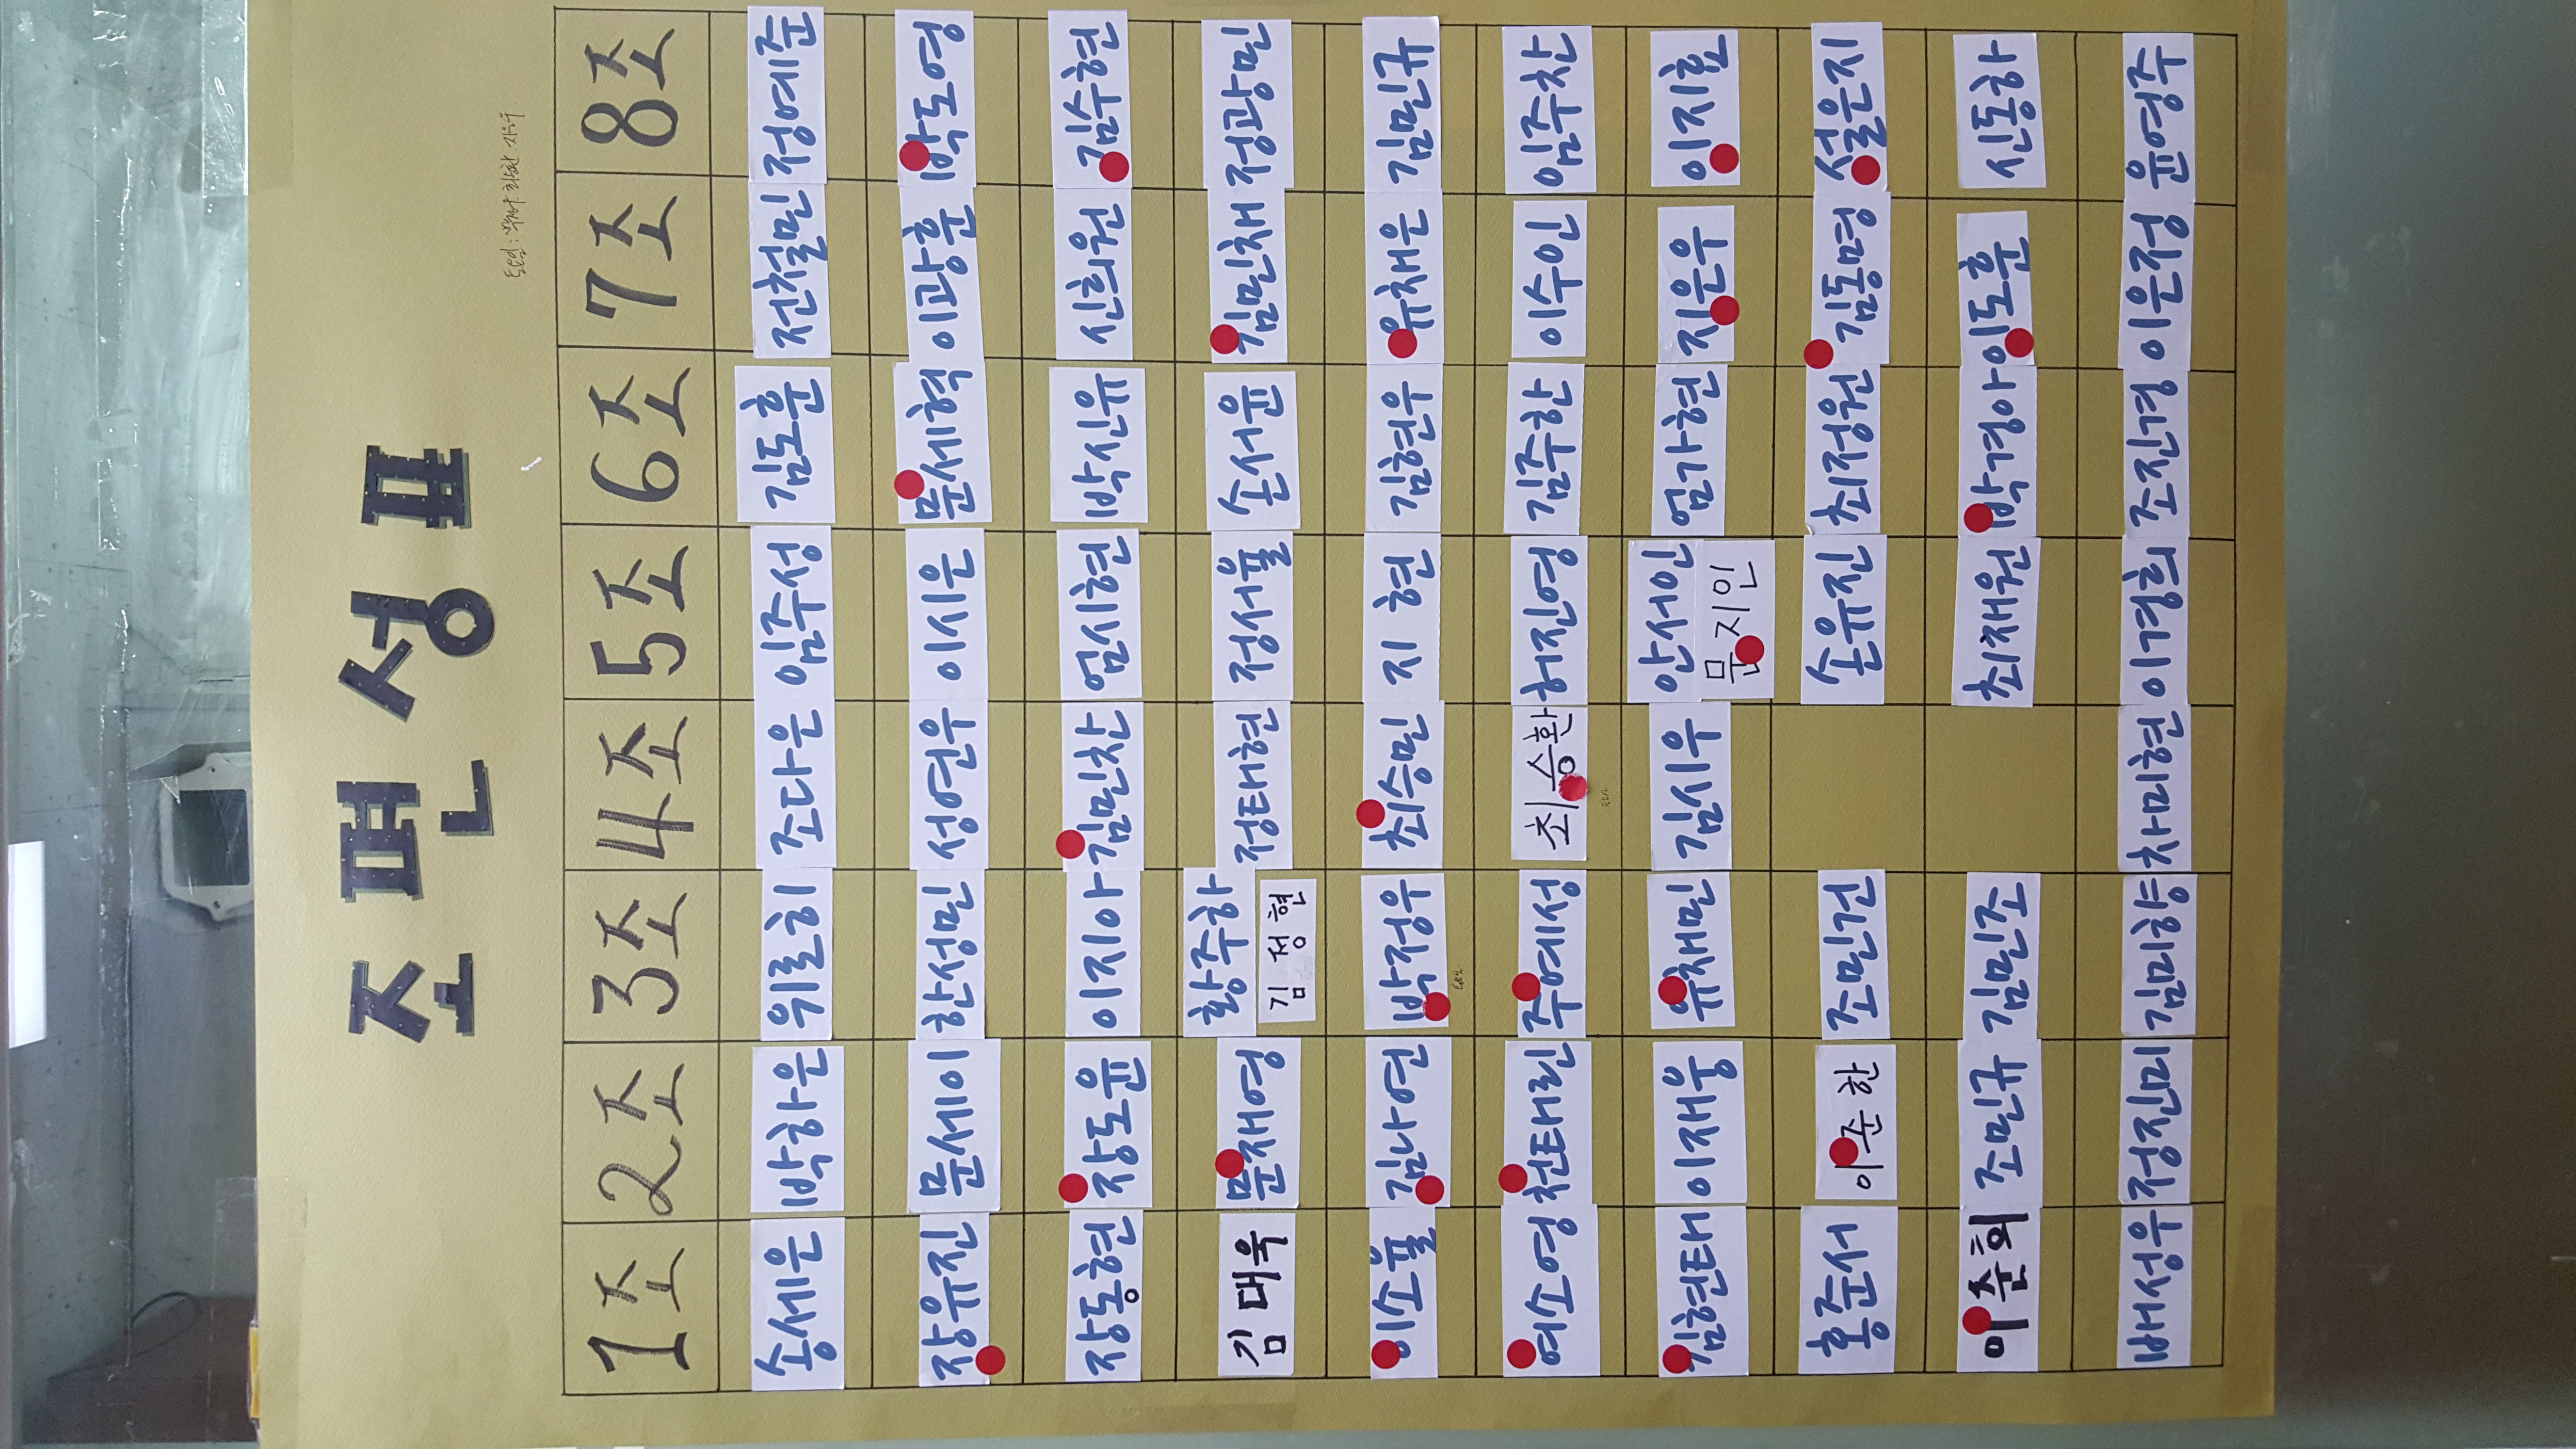 조 편 성 표
1조 2조 3조 4조 5조 6조 7조 8조
송세은 박하은 위로히 조다은 임주성 김도훈 전철민 정예준
장유진 문세이 한성민 성연우 이시은 문세혁 이광훈 박도영
장동현 장도윤 이지아 김민찬 엄시현 박신유 신희원 김수현
김대욱 문재영 황주하 정태현 정서율 손서윤 김민채 정광민
김성현
이소율 김나연 박정우 최승민 지현 김현우 유채은 김민규
여소영 천태린 주예성 최승환 허진영 김주한 이수인 임주찬
김현태 이재웅 유채민 김시우 안서인 엄가현 지은우 이지효
문지인
홍준서 이준한 조민건 손유진 최정원 김동명 설은지
이준희 조민규 김민조 최채원 박경아 이도훈 신동하
배성우 정진미 김미향 차미현 이경희 조진경 이은정 윤영주